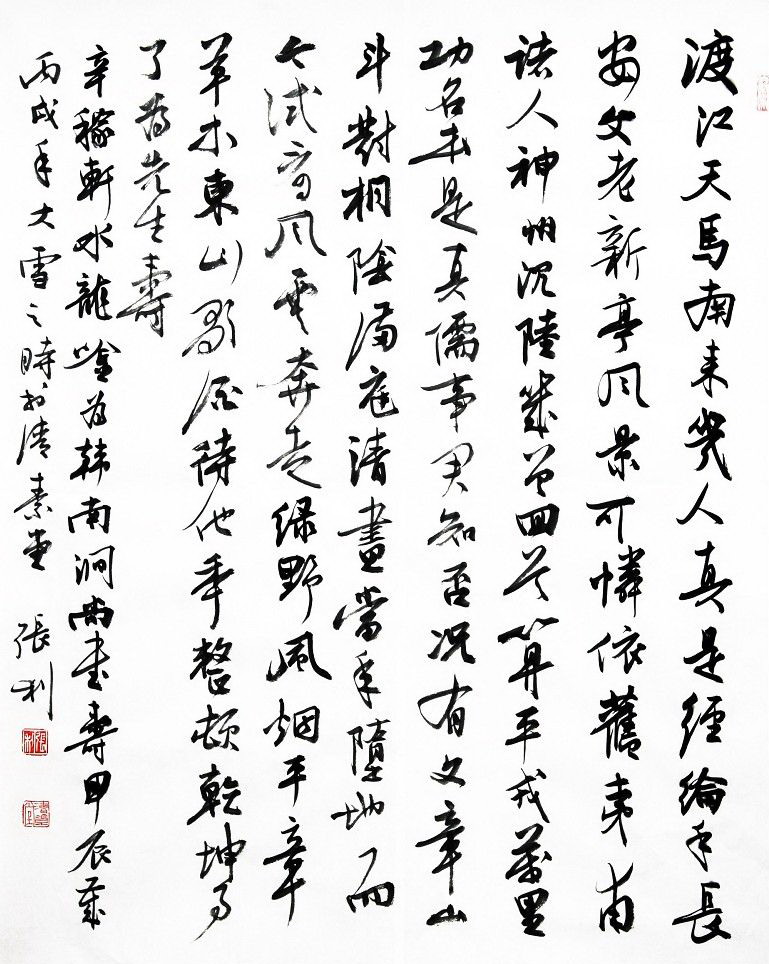 渡江天馬南来幾人真是經綸手長
安父老新亭風景可憐依舊夷甫
諸人神州沉陸幾曾回首算平戎萬里
功名本是真儒事君知否况有文章山
斗對桐陰滿庭清晝當年墮地而
今试看風雲奔走绿野風烟平章
草木東山歌酒待他年整頓乾坤事
了為先生壽
辛稼軒水龍吟為韩南澗尚書壽甲辰歲
丙戌年大雪之時於清素堂 張利